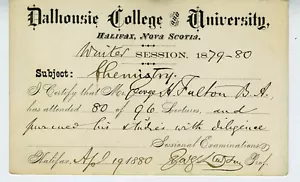 Dalhousie College and University,
HALIFAX, NOVA SCOTIA.
Winter SESSION, 1879-80
Subject: Chemistry.
I Certify that Mr. George H. Fulton B.A.
has attended 80 of 96 Lectures, and
pursued his studies with diligence
Sessional Examinations
Halifax, Apl 19 1880 Prof.